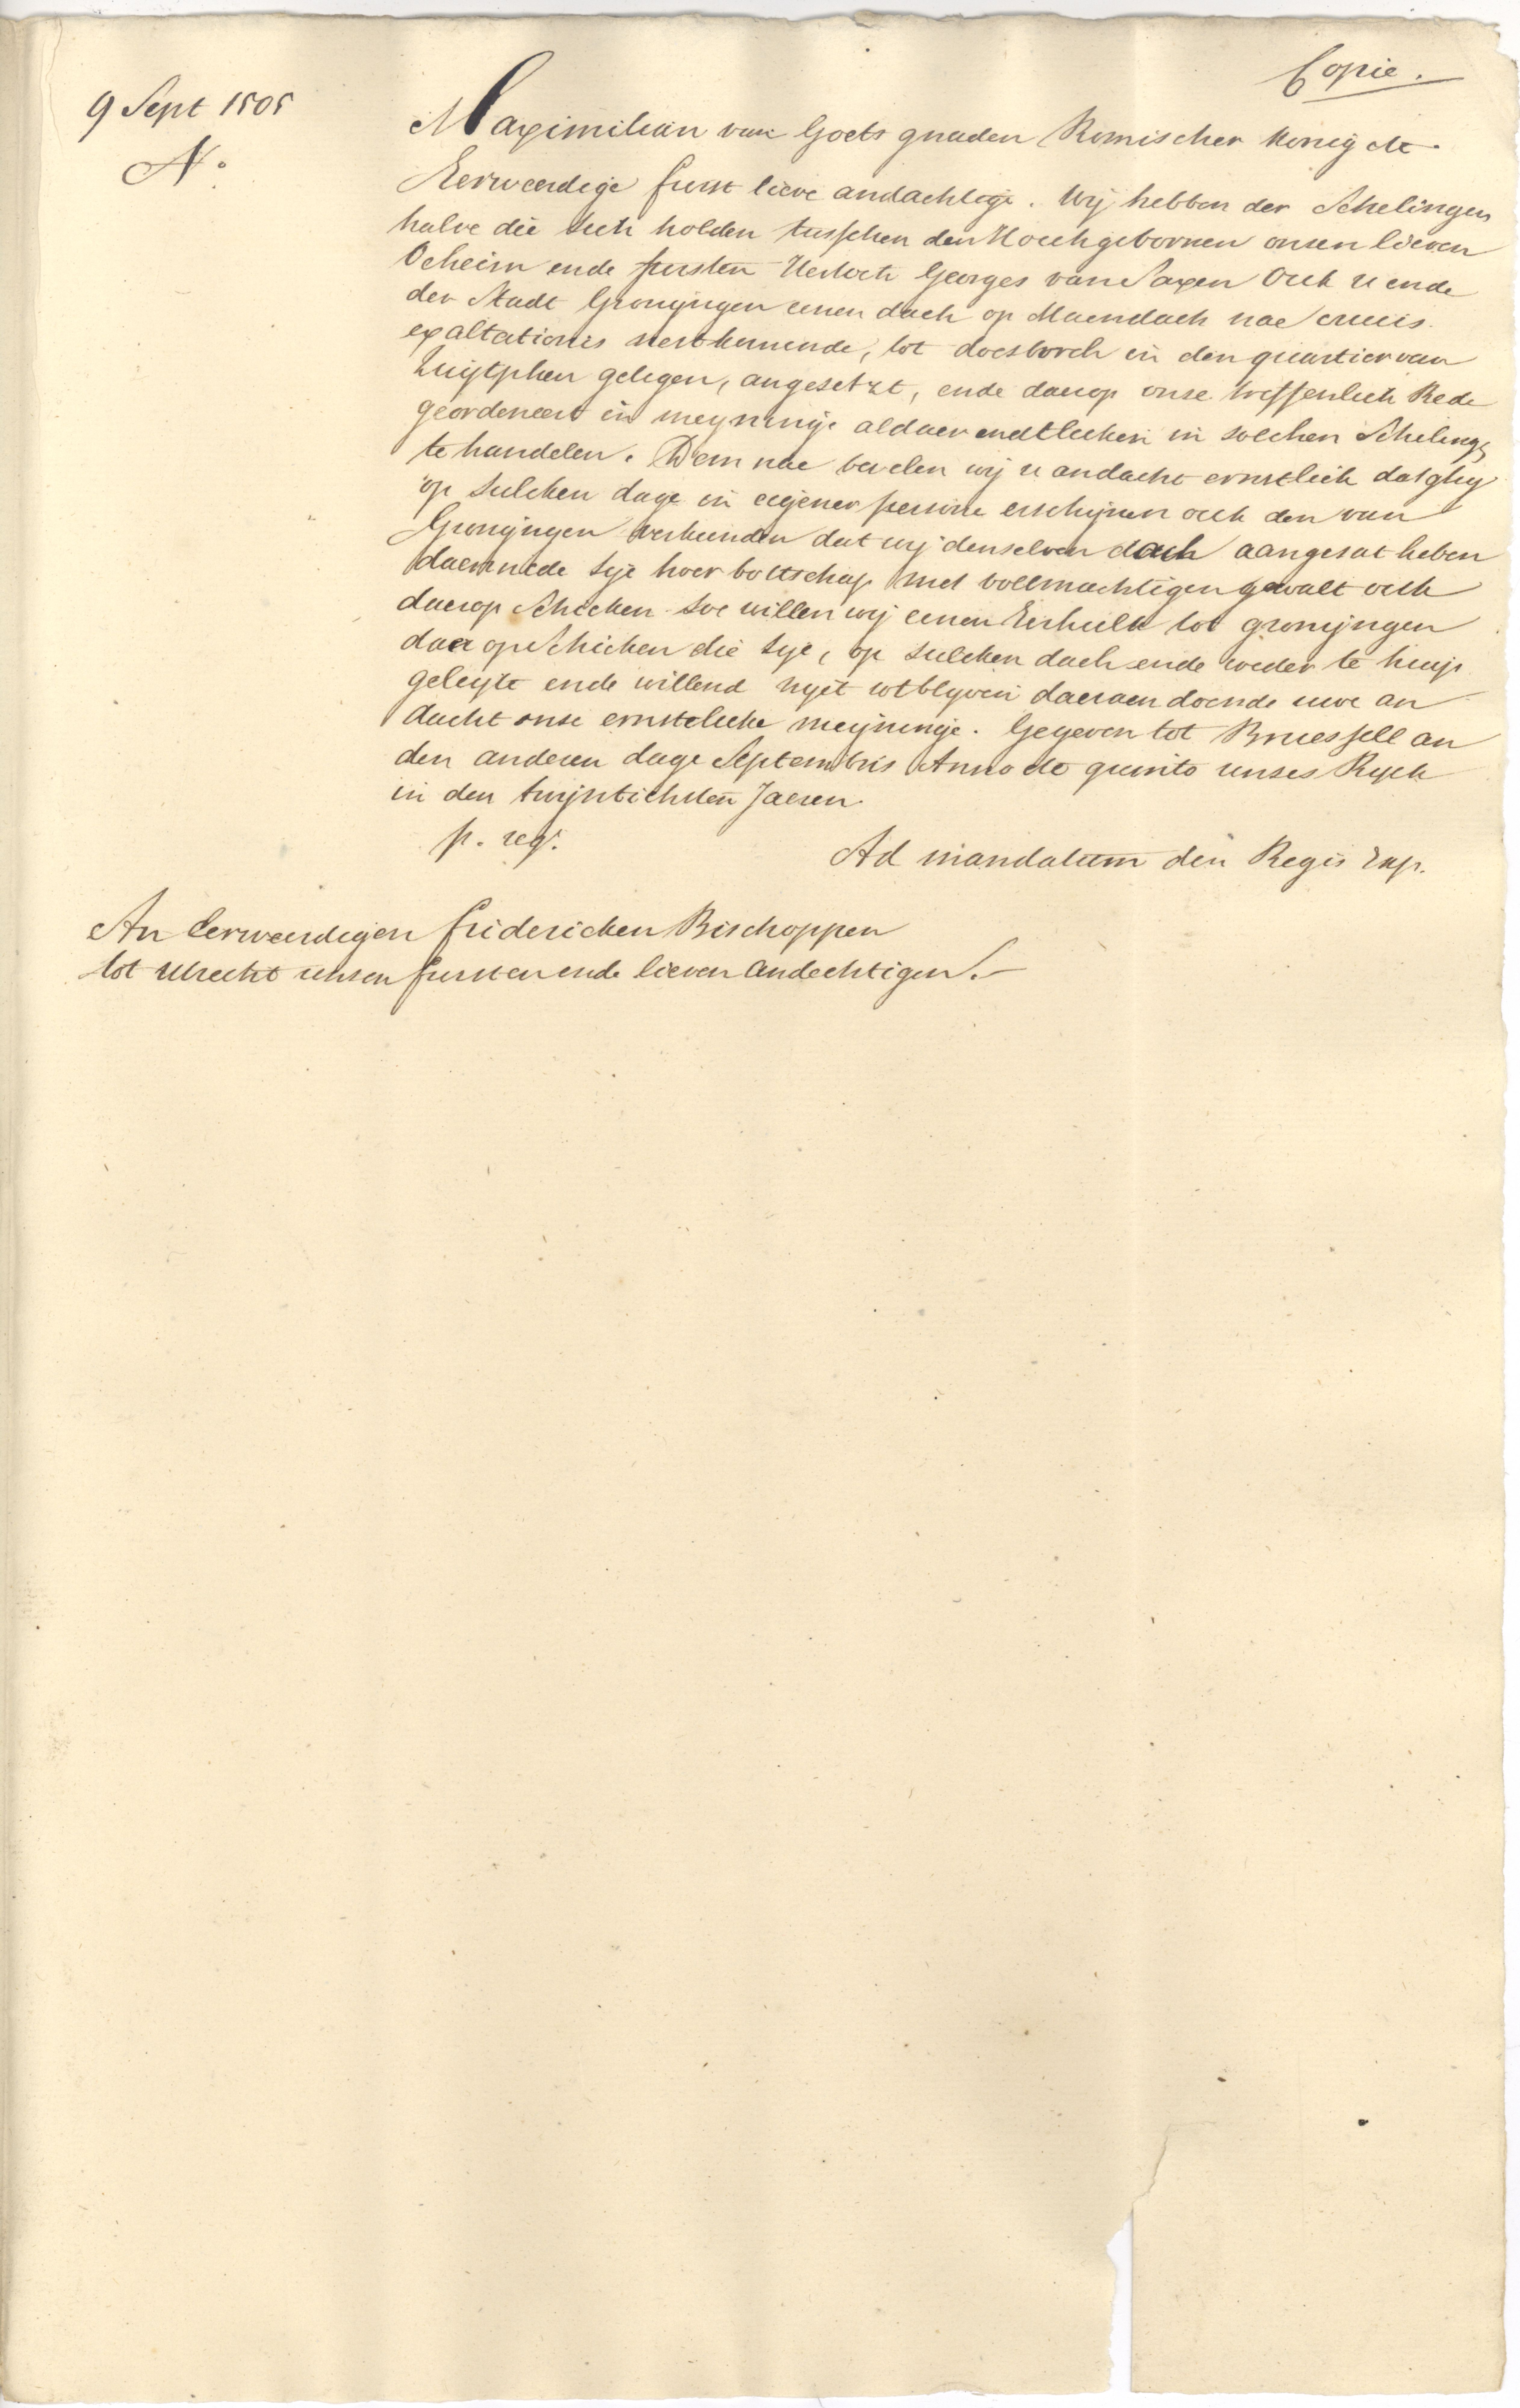 Copie.
9 Sept 1505
No
Maximilian van Goets gnaden Romischer Konig etc.
Eerweerdige furst lieve andachtige. Wij hebben der Schelingen
halve die sich holden tusschen den Hoichgebornen onsen lieven
Oeheim ende fursten Hertoch Georges van Saxen Ock u ende
der Stadt Gronyngen eenen dach op Maendach nae crucis
exaltationis nestkumende, tot doesborch in den quartier van
Zuijtphen gelegen, angesetzt, ende daerop onse treffenlich Rede
geordeneert in meyninge aldaer endtlicken in solchen Schelinge
te handelen. Dem nae bevelen wij u andacht ernstlick dat ghij
op sulcken dage in eigener persone erschijnen ock den van
Gronyngen verkunden dat wij denselven dach aangesat heben
daermede sye hoer bottschap met vollmachtigen gewalt ock
daerop schicken soe willen wij eenen Erhult tot gronyngen
daer op schicken die sye, op sulcken dach ende weder te huijs
geleyte ende willend nyet utblyven daeraen doende uwe an
dacht onse ernstelicke meyninge. Gegeven tot Bruessell an
den anderen dage Septembris Anno etc quinto unses Rycks
in den twijntichsten Jaeren.
p. regr.
Ad mandatum dni Regis Exp.
An Eerweerdigen fridericken Bischoppen
tot Utrecht unsen fursten ende lieven andechtigen.